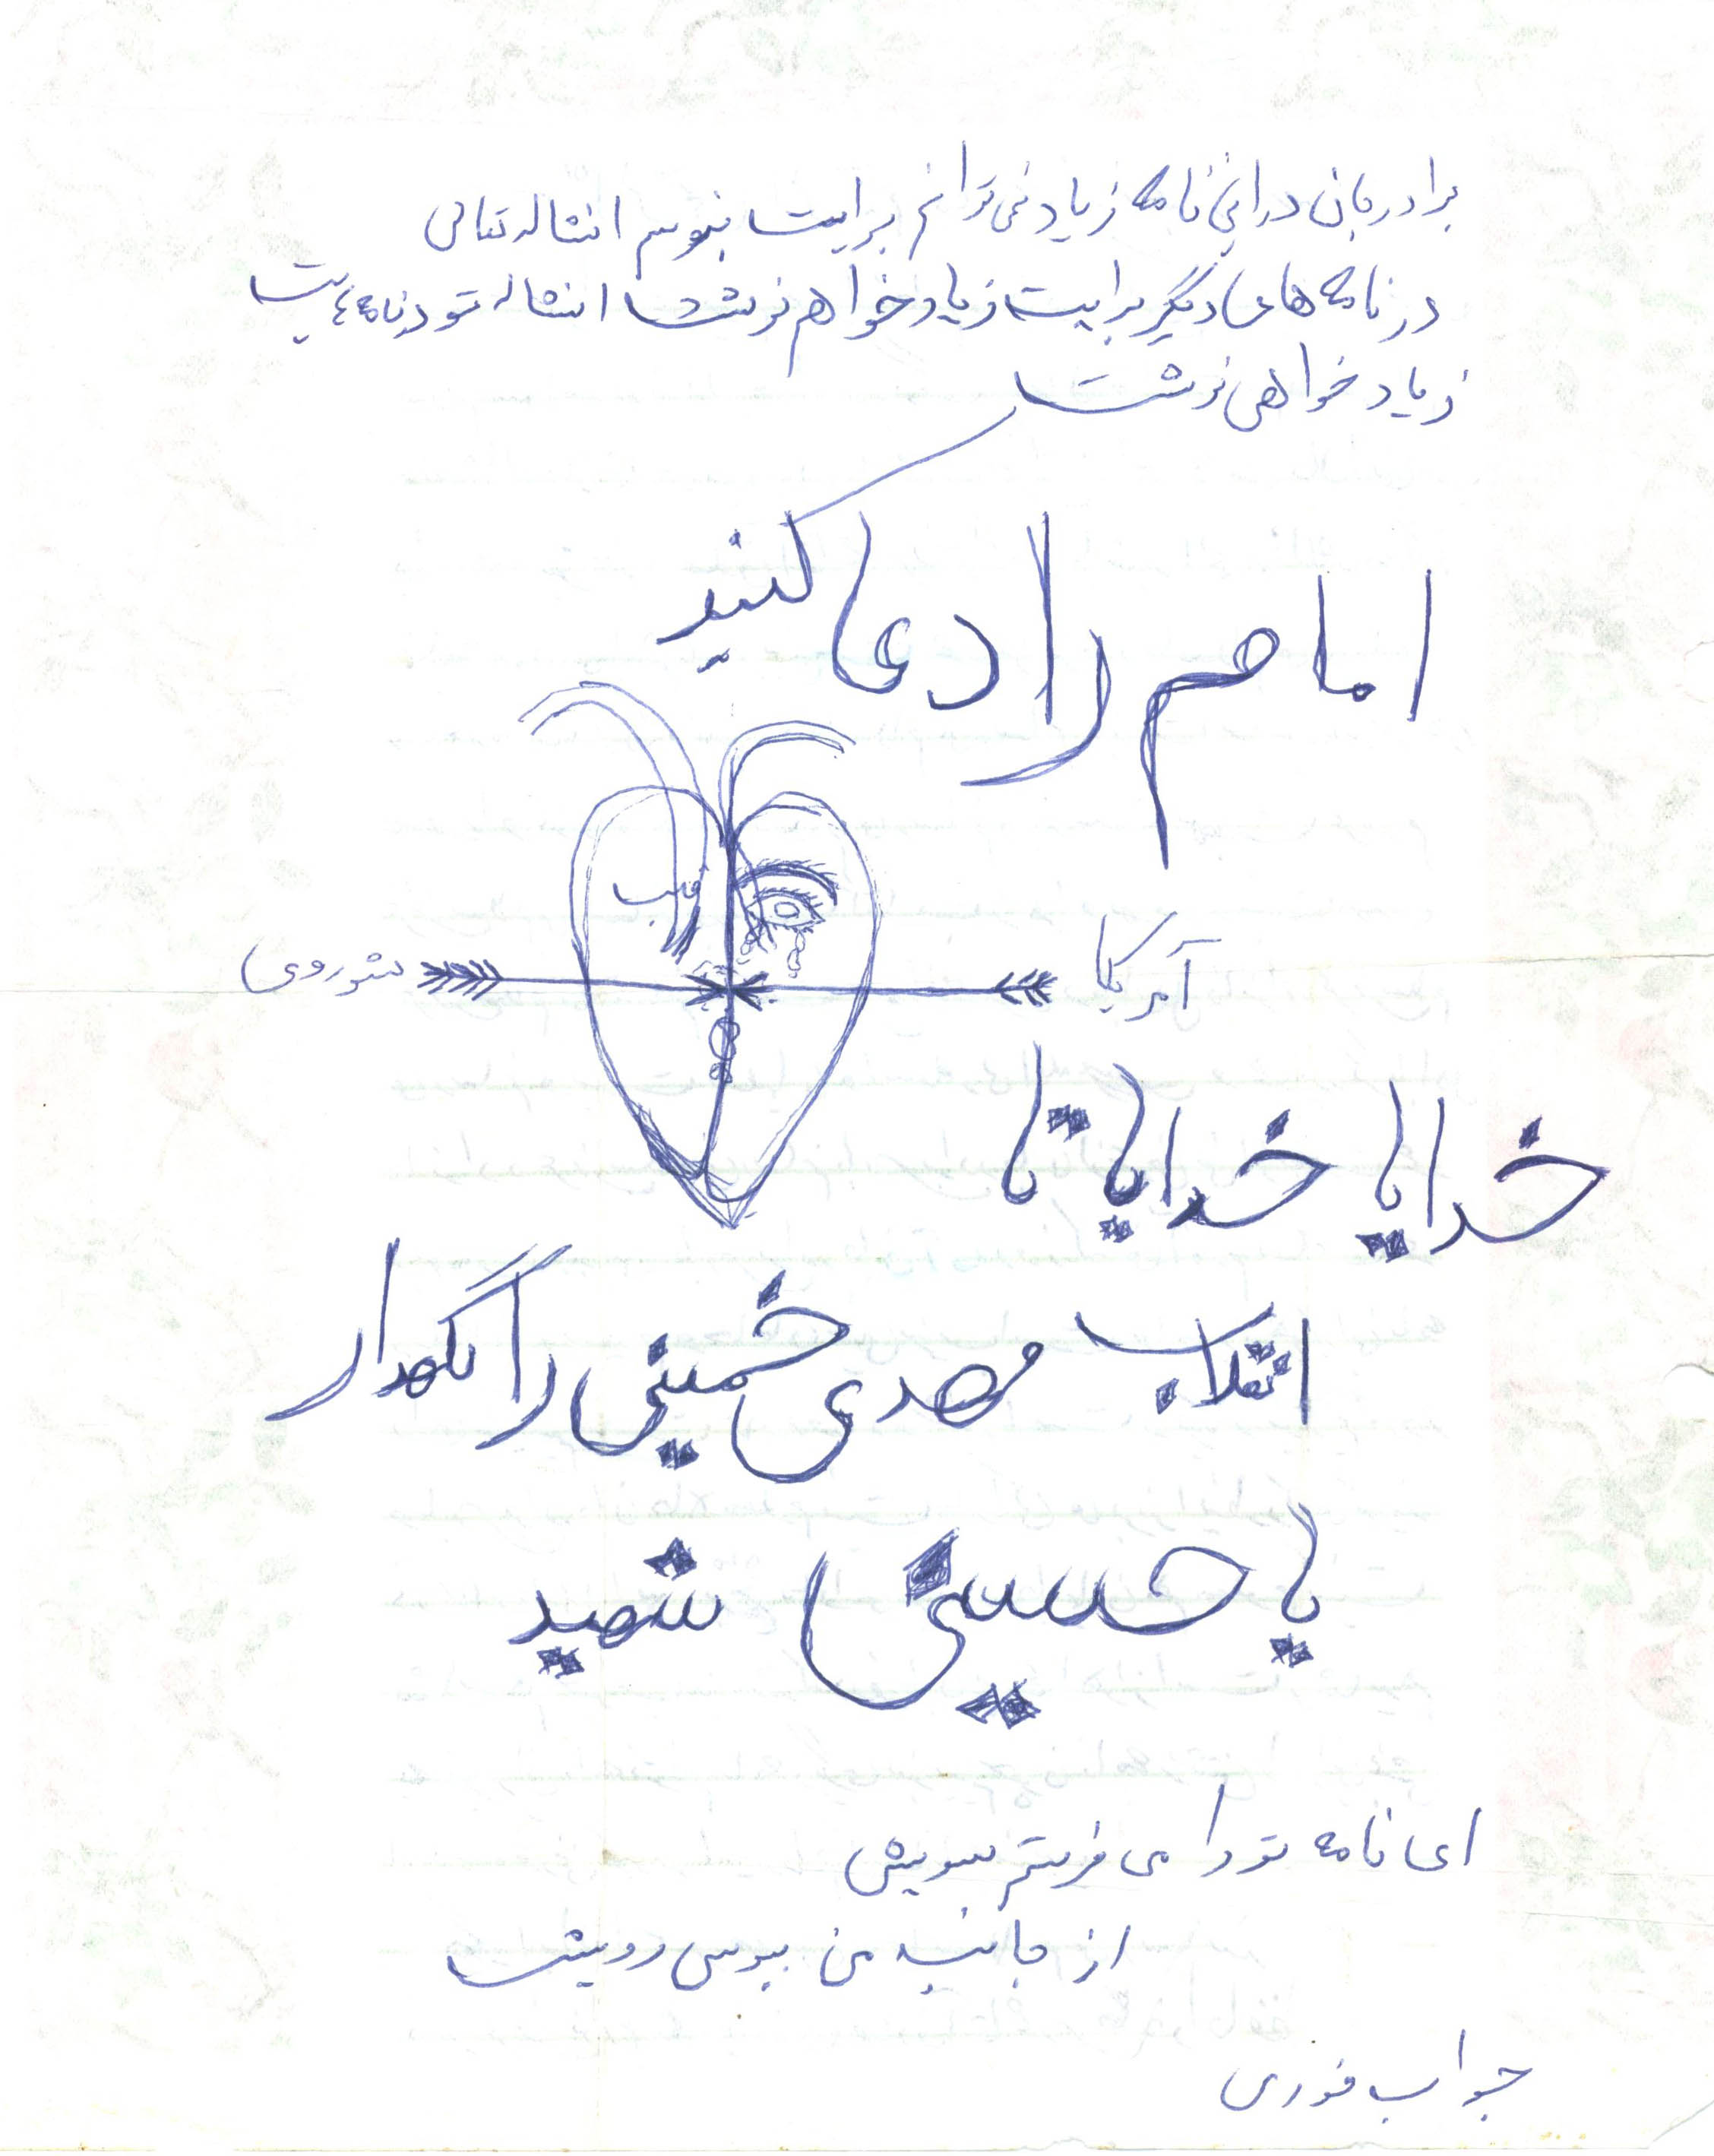 برادرجان در این نامه زیاد نمی توانم برایت بنویسم انشاله تعالی
در نامه های دیگر برایت زیاد خواهم نوشت انشاله تو در نامه ءیت
زیاد خواهی نوشت
امام را دعا کنید
قلب
شوروی
آمریکا
خدایا خدایا تا
انقلاب مهدی خمینی را نگهدار
یا حسین شهید
ای نامه تو را می فرستم بسویش
از جانب من ببوس رویش
جواب فوری